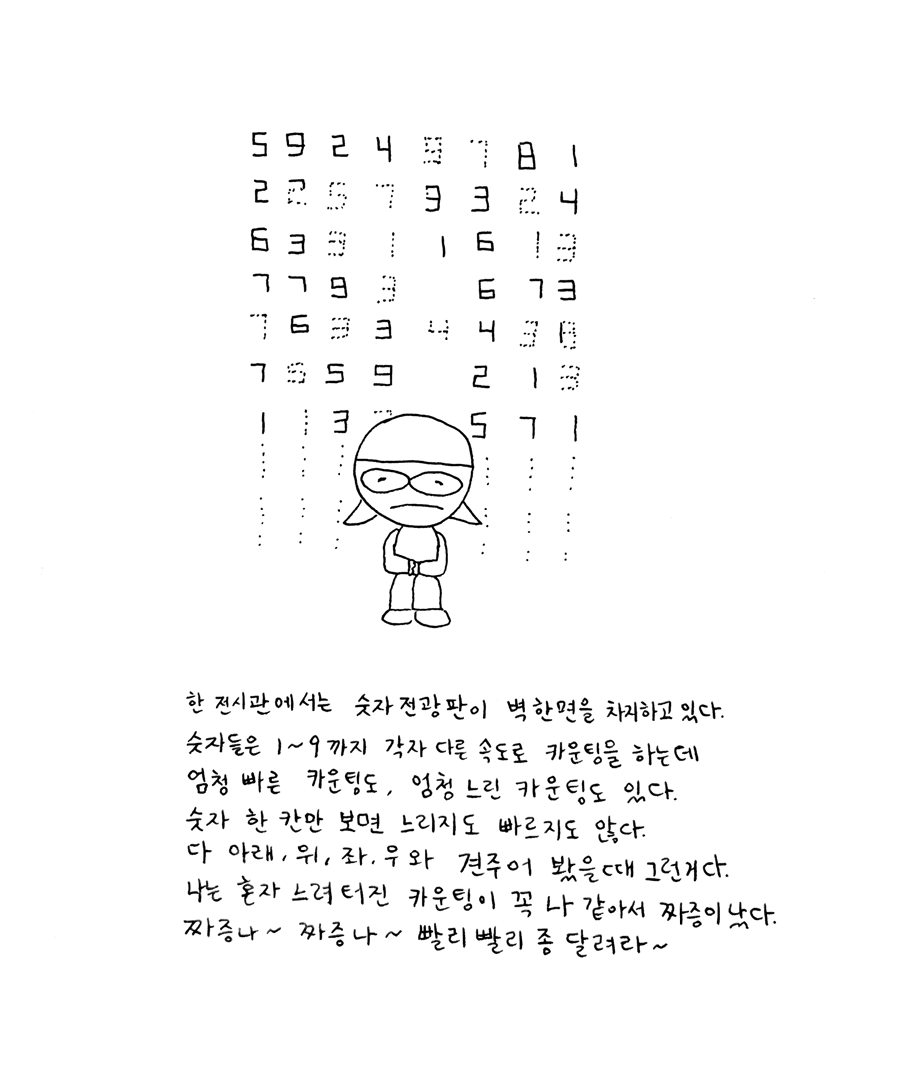 5 9 2 4 9 7 8 1
2 2 5 7 9 3 2 4
6 3 3 1 1 6 1 3
7 7 9 3 6 7 3
7 6 3 3 4 4 3 8
7 5 5 9 2 1 3
1 1 3 5 7 1
한 전시관에서는 숫자전광판이 벽 한면을 차지하고 있다.
숫자들은 1~9까지 각자 다른 속도로 카운팅을 하는데
엄청 빠른 카운팅도, 엄청 느린 카운팅도 있다.
숫자 한 칸만 보면 느리지도 빠르지도 않다.
다 아래, 위, 좌, 우와 견주어 봤을때 그런거다.
나는 혼자 느려터진 카운팅이 꼭 나 같아서 짜증이 났다.
짜증나~ 짜증나~ 빨리빨리 좀 달려라~